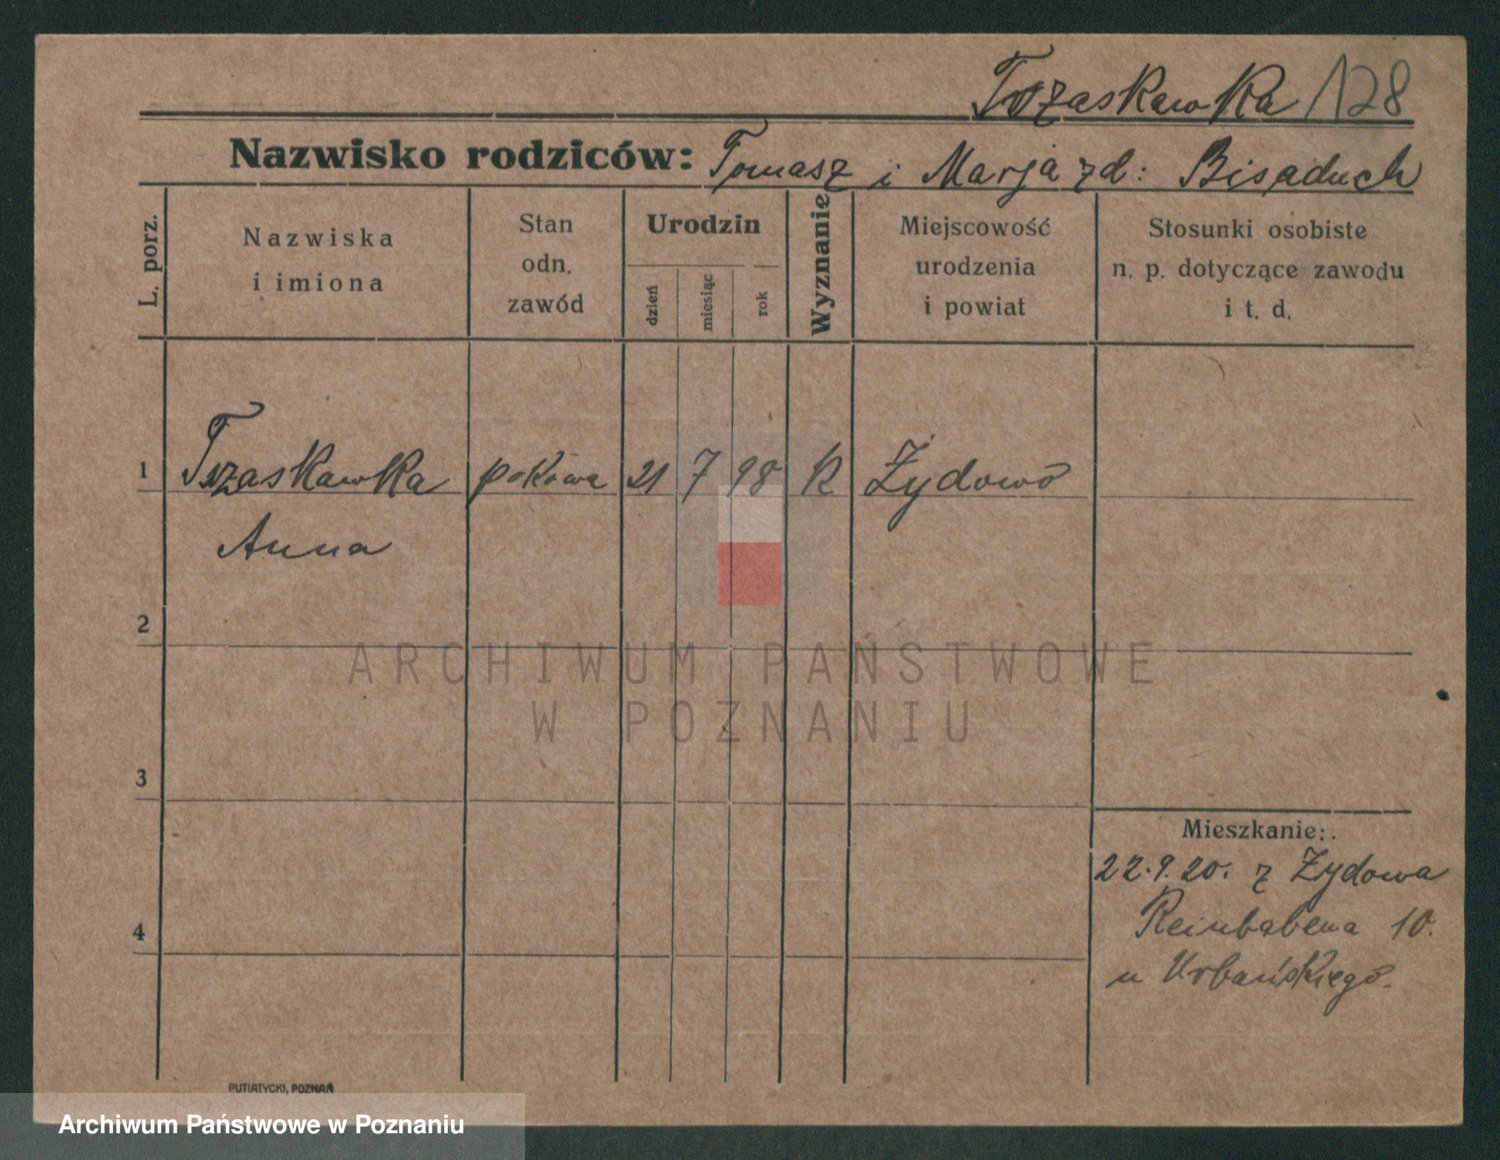 Trzaskawka 128
Nazwisko rodziców: Tomasz i Marja zd: Bisaduch
L. porz.
Nazwiska
i imiona
Stan
odn.
zawód
Urodzin
dzień
miesiąc
rok
Wyznanie
Miejscowość
urodzenia
i powiat
Stosunki osobiste
n. p. dotyczące zawodu
i t. d.
1 Trzaskawka pokowa 21 7 98 K Żydowo
Anna
2
ARCHIWUM PAŃSTWOWE
W POZNANIU
3
Mieszkanie:
22.9.20. z Żydowa
4
Reinbabena 10.
u Urbańskiego.
PUTIATYCKI, POZNAŃ
Archiwum Państwowe w Poznaniu